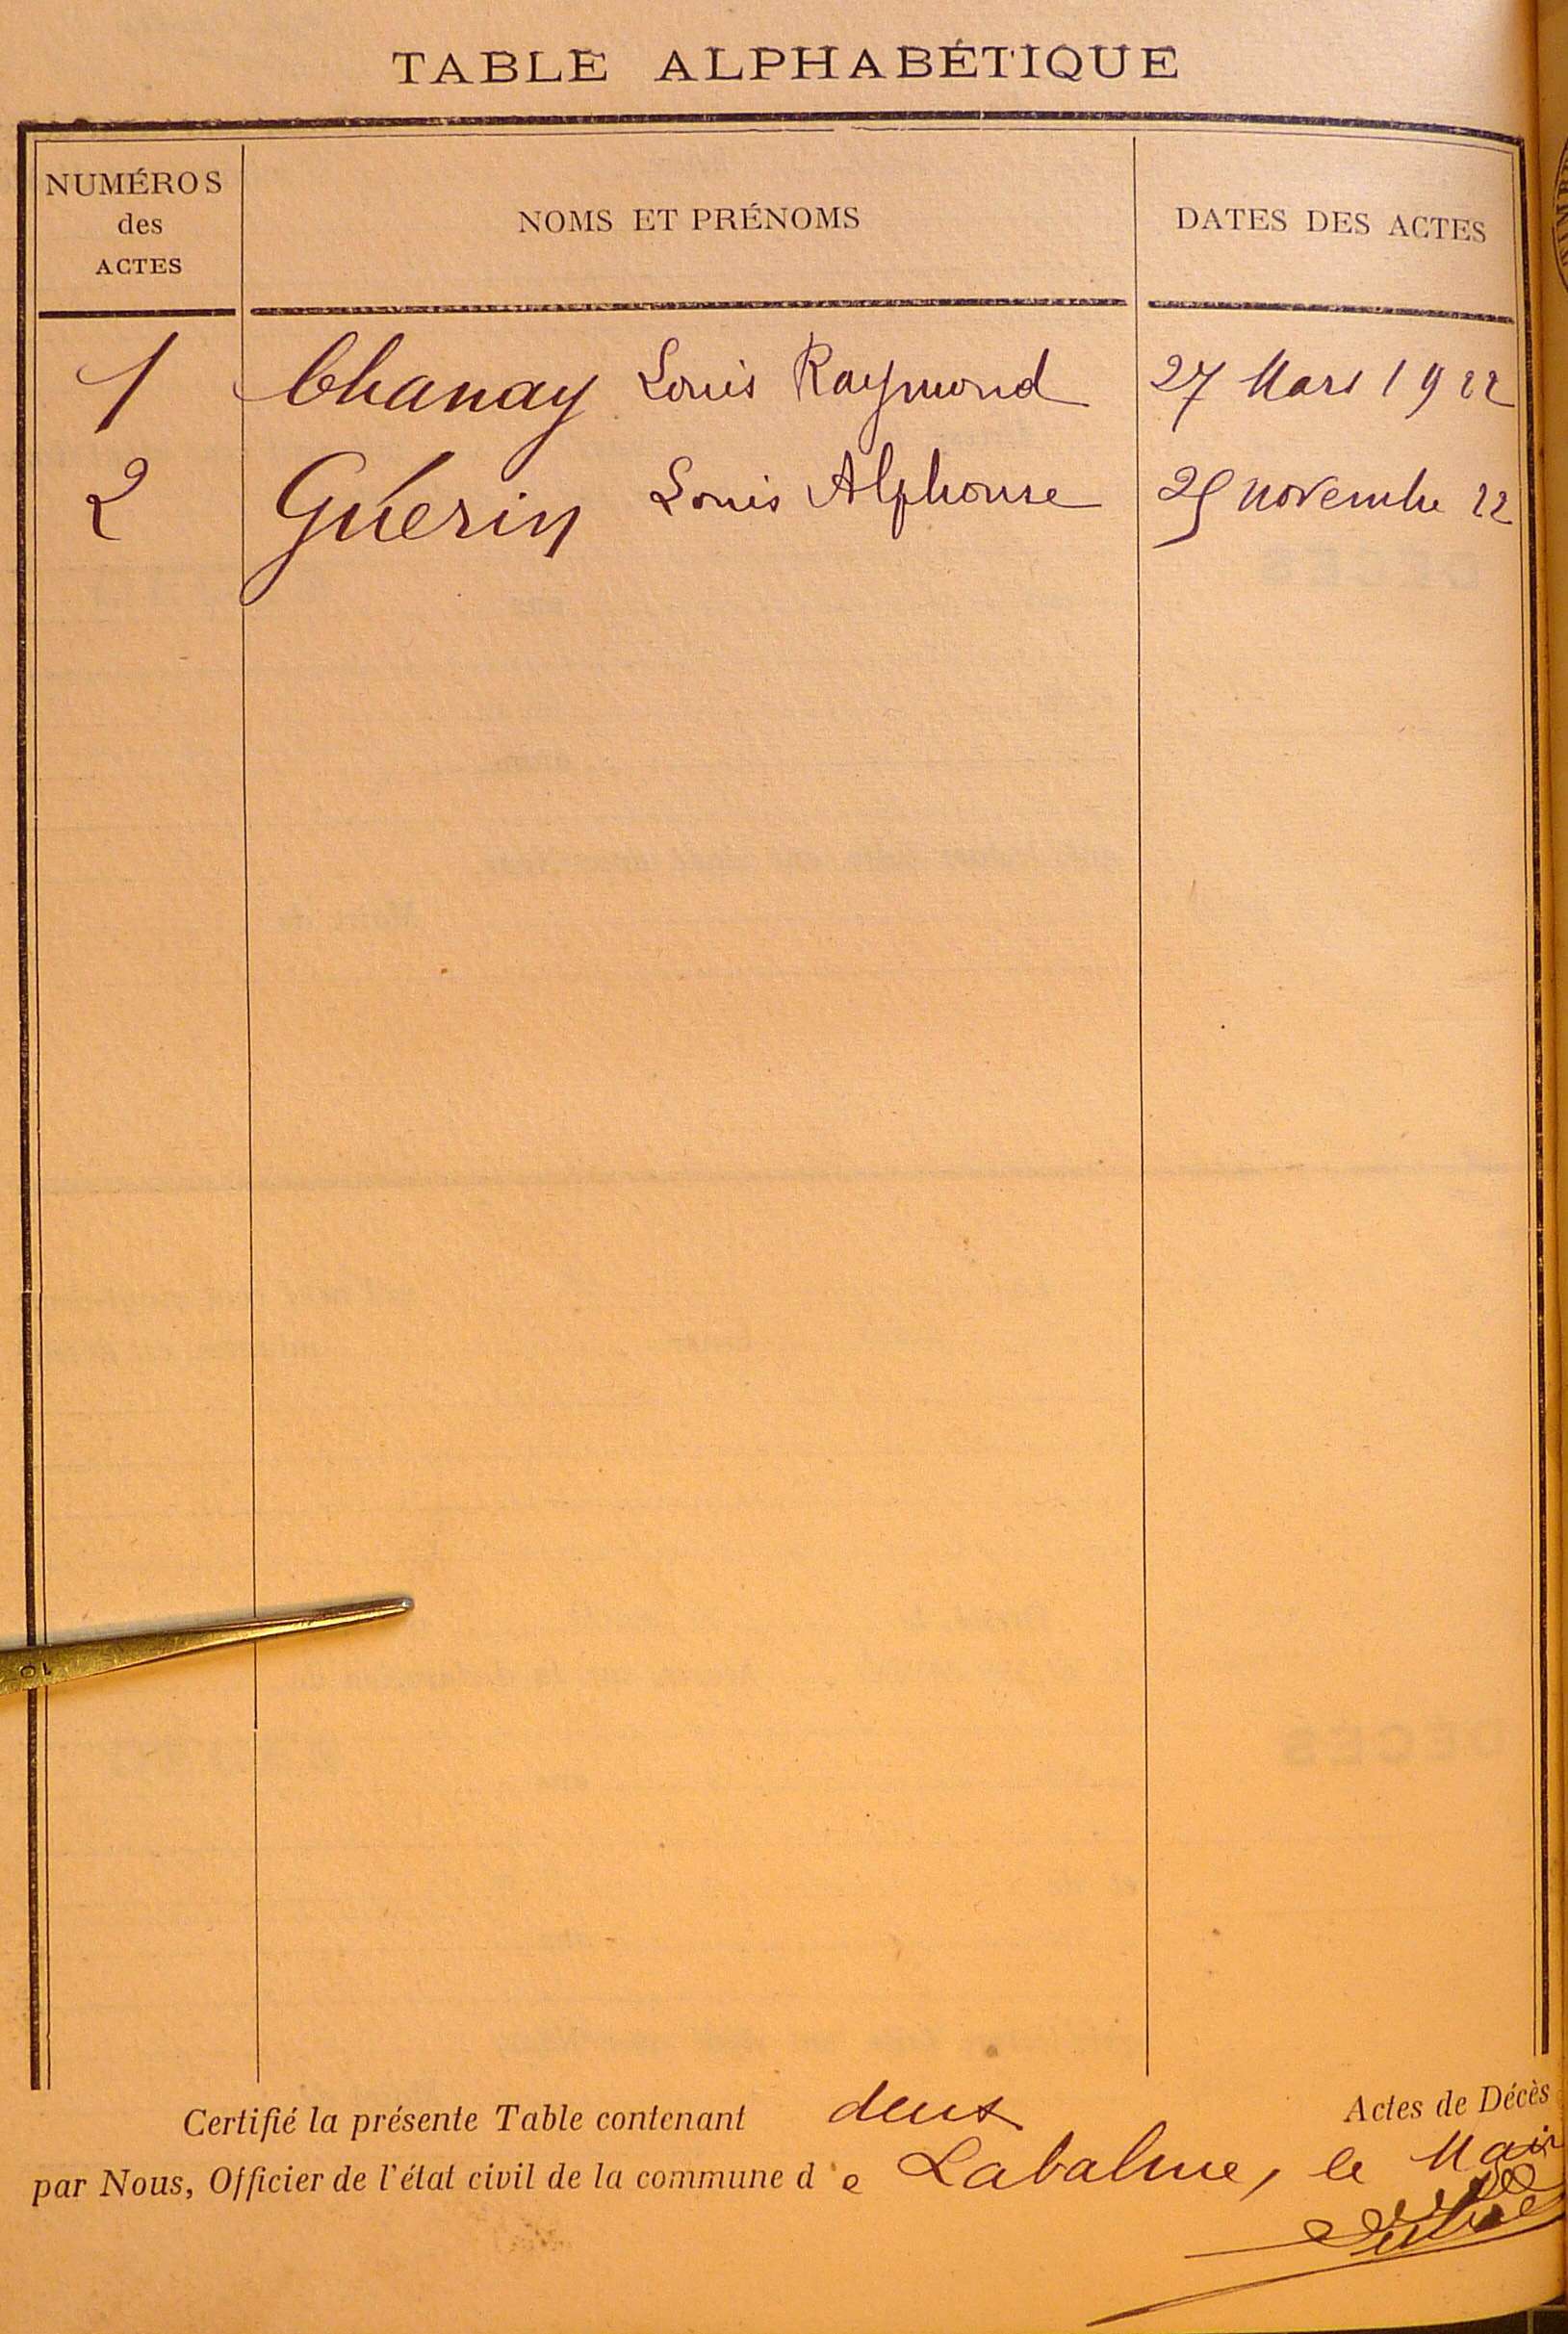 TABLE ALPHABÉTIQUE
NUMÉROS
des
ACTES
NOMS ET PRÉNOMS
DATES DES ACTES
1 Chanay Louis Raymond 27 Mars 1922
2 Guérin Louis Alphonse 25 novembre 22
10
Certifié la présente Table contenant deux Actes de Décès
par Nous, Officier de l'état civil de la commune de Labalme, le Mair